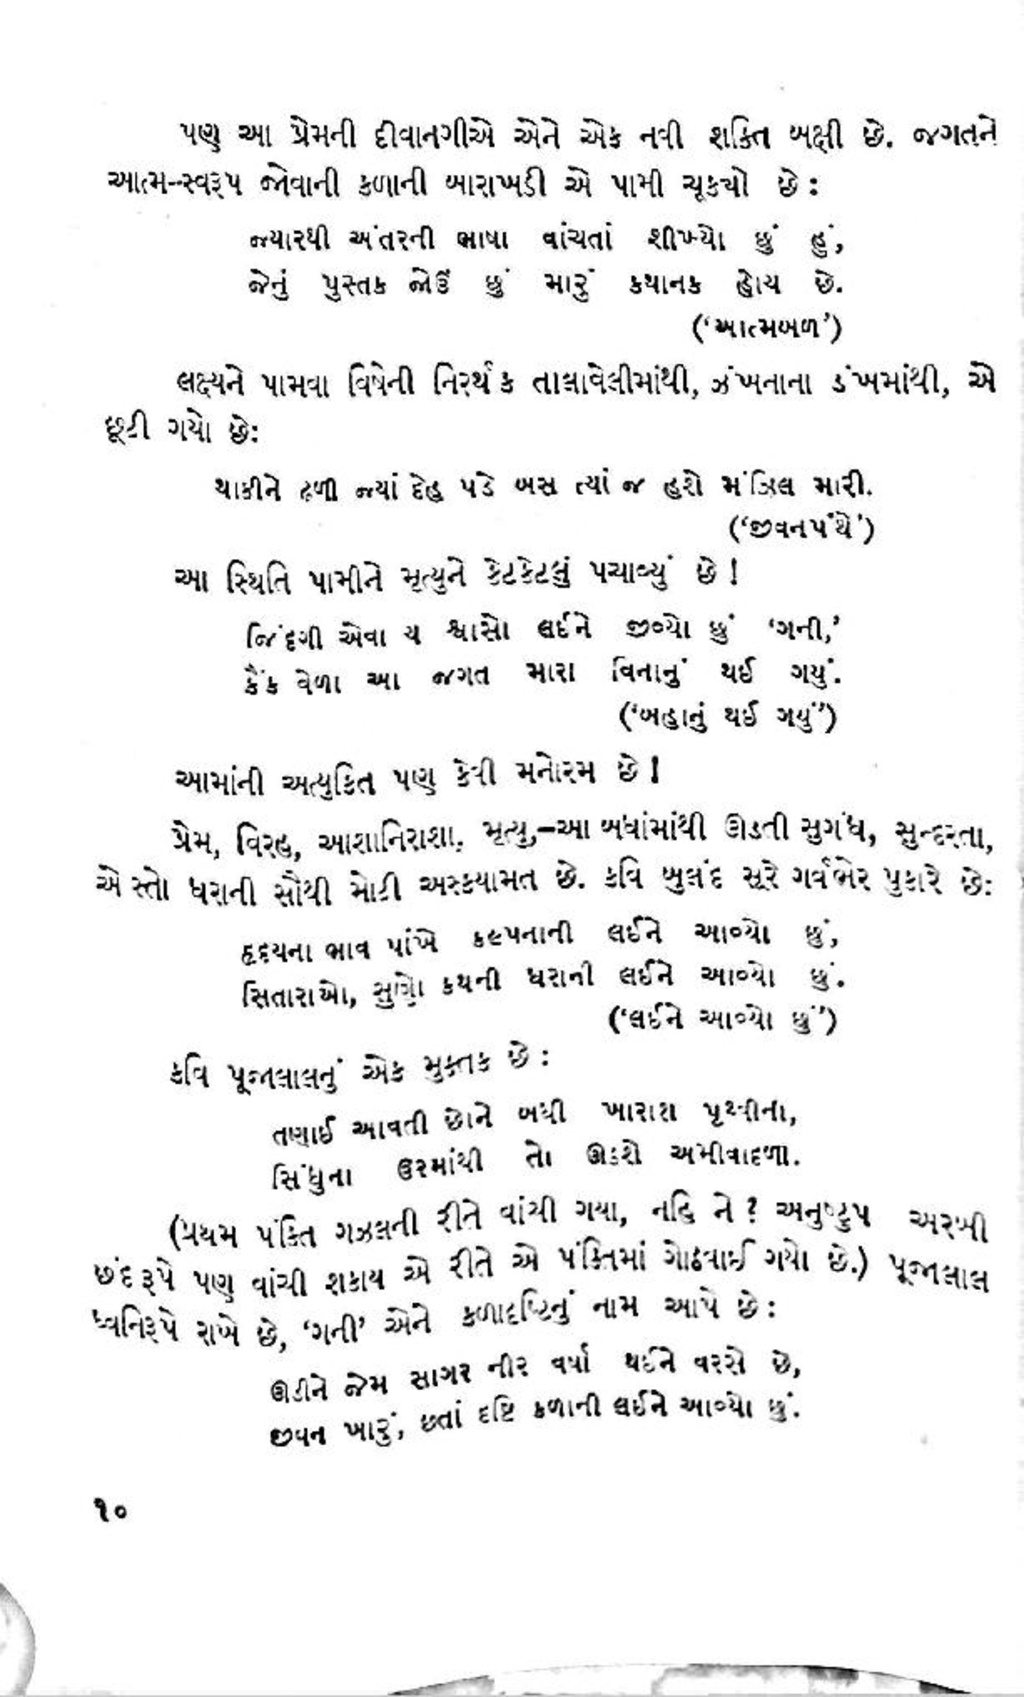 પણ આ પ્રેમની દીવાનગીએ એને એક નવી શક્તિ બક્ષી છે. જગતને
આત્મ-સ્વરૂપ જોવાની કળાની બારાખડી એ પામી ચૂક્યો છે :
જ્યારથી અંતરની ભાષા વાંચતાં શીખ્યો છું હું,
જેનું પુસ્તક જોઉં છું મારું કથાનક હોય છે.
(‘આત્મબળ’)
લક્ષ્યને પામવા વિષેની નિરર્થક તાલાવેલીમાંથી, ઝંખનાના ડંખમાંથી, એ
છૂટી ગયો છે:
થાકીને ઢળી જ્યાં દેહ પડે બસ ત્યાં જ હશે મંઝિલ મારી.
(‘જીવનપંથે’)
આ સ્થિતિ પામીને મૃત્યુને કેટકેટલું પચાવ્યું છે !
જિંદગી એવા ય શ્વાસો લઈને જીવ્યો છું ‘ગની,’
કૈંક વેળા આ જગત મારા વિનાનું થઈ ગયું.
(‘બહાનું થઈ ગયું’)
આમાંની અત્યુકિત પણ કેવી મનોરમ છે !
પ્રેમ, વિરહ, આશાનિરાશા, મૃત્યુ,–આ બધાંમાંથી ઊડતી સુગંધ, સુન્દરતા,
એ સ્તો ધરાની સૌથી મોટી અસ્કયામત છે. કવિ બુલંદ સૂરે ગર્વભેર પુકારે છે:
હૃદયના ભાવ પાંખે કલ્પનાની લઈને આવ્યો છું,
સિતારાઓ, સુણો કથની ધરાની લઈને આવ્યો છું.
(‘લઈને આવ્યો છું’)
કવિ પૂજાલાલનું એક મુક્તક છે :
તણાઈ આવતી છોને બધી ખારાશ પૃથ્વીના,
સિંધુના ઉરમાંથી તો ઊડશે અમીવાદળા.
(પ્રથમ પંક્તિ ગઝલની રીતે વાંચી ગયા, નહિ ને ? અનુષ્ટુપ અરબી
છંદરૂપે પણ વાંચી શકાય એ રીતે એ પંક્તિમાં ગોઠવાઈ ગયો છે.) પૂજાલાલ
ધ્વનિરૂપે રાખે છે, ‘ગની’ એને કળાદષ્ટિનું નામ આપે છે :
ઊડીને જેમ સાગર નીર વર્ષા થઈને વરસે છે,
જીવન ખારું, છતાં દષ્ટિ કળાની લઈને આવ્યો છું.
૧૦